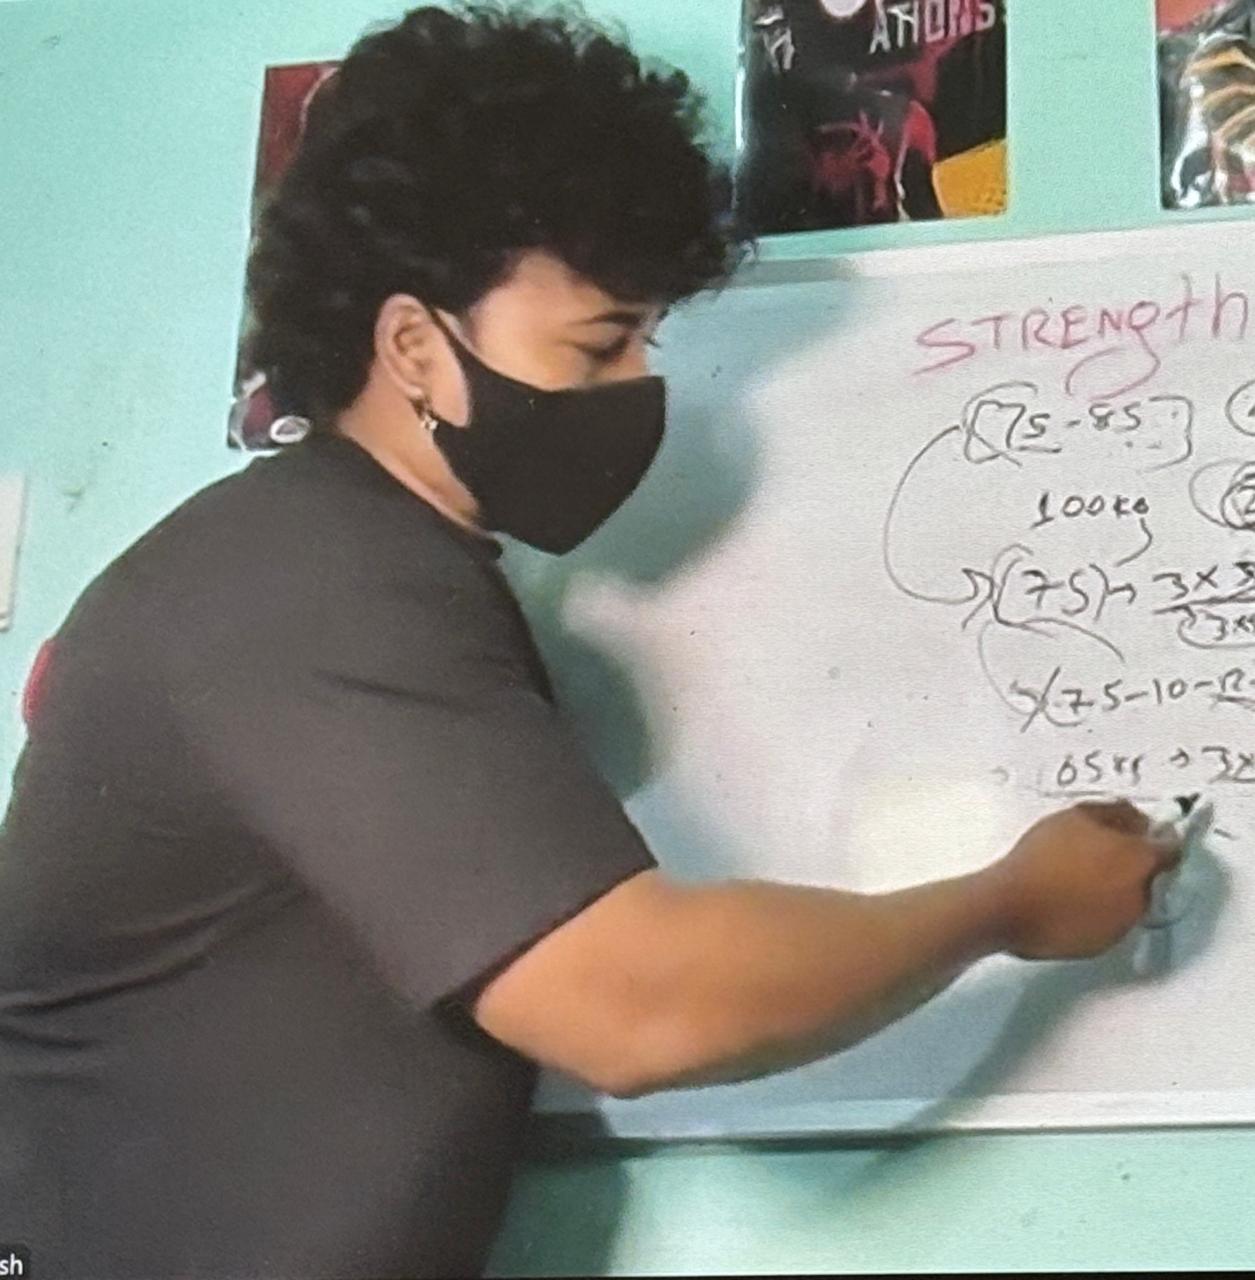 ATIONS
STRENgth
[75-85]
100kg
(75) → 3x
(3x
7.5-10-12-
65kg → 3x
sh